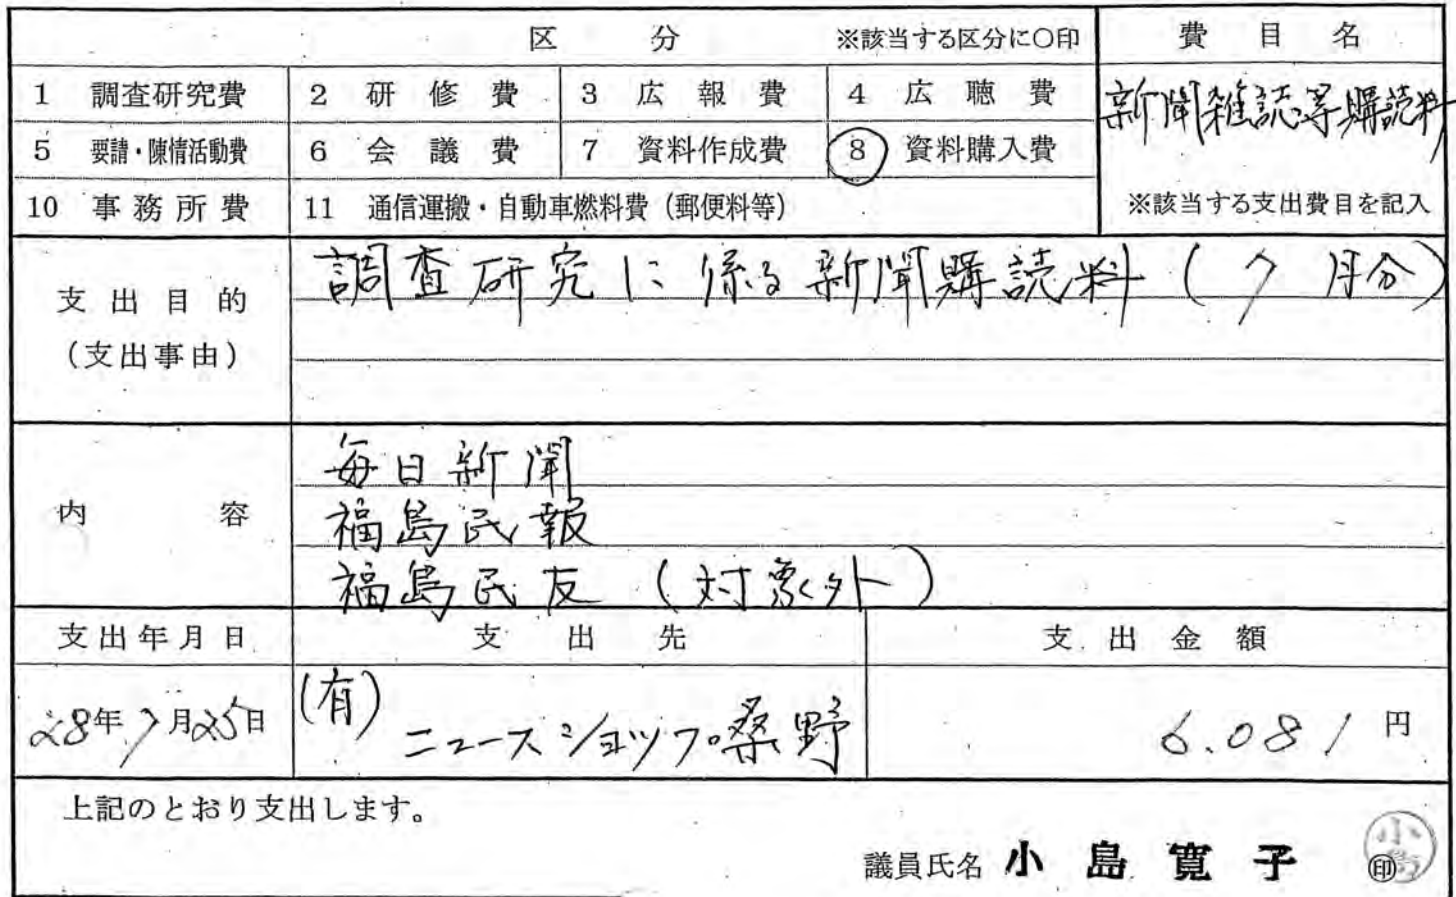 区 分 ※該当する区分に○印
費 目 名
1 調査研究費 2 研 修 費 3 広 報 費 4 広 聴 費
新聞雑誌等購読料
5 要請・陳情活動費 6 会 議 費 7 資料作成費 8 資料購入費
10 事 務 所 費 11 通信運搬・自動車燃料費（郵便料等）
※該当する支出費目を記入
支 出 目 的
（支出事由）
調査研究に係る新聞購読料（7月分）
内 容
毎日新聞
福島民報
福島民友（対象外）
支出年月日 支 出 先 支 出 金 額
28年7月25日 (有)ニュースショップ桑野 6.081円
上記のとおり支出します。
議員氏名 小 島 寛 子 印
小島